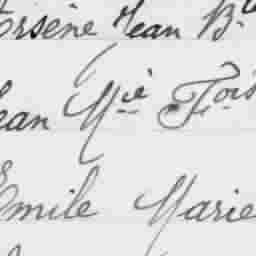 Arsène Jean Bte
Jean Mie Fois
Emile Marie